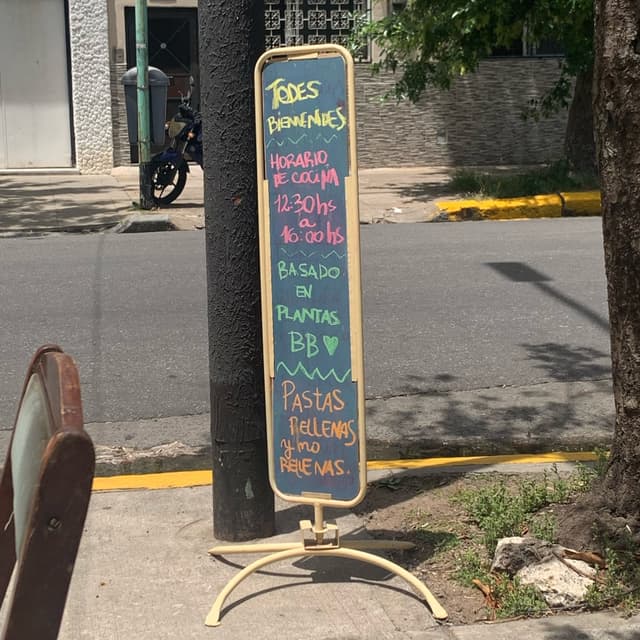 TODES
BIENVENIDES
HORARIO
DE COCINA
12:30hs
a
16:00hs
BASADO
EN
PLANTAS
BB♥
PASTAS
RELLENAS
y no
RELENAS.